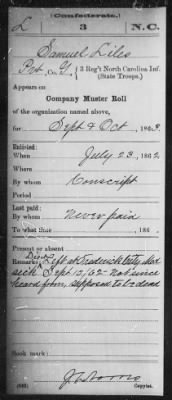 (Confederate.)
L 3 N.C.
Samuel Liles
Pvt, Co. G, 3 Reg't North Carolina Inf.
(State Troops.)
Appears on
Company Muster Roll
of the organization named above,
for Sept & Oct, 1863.
Enlisted:
When July 23, 1862.
Where
By whom Conscript
Period
Last paid:
By whom Never paid
To what time , 186 .
Present or absent
Remarks: Left at Frederick City, Md
sick Sept 12/62 - Not since
heard from, supposed to be dead
(642) Copyist.